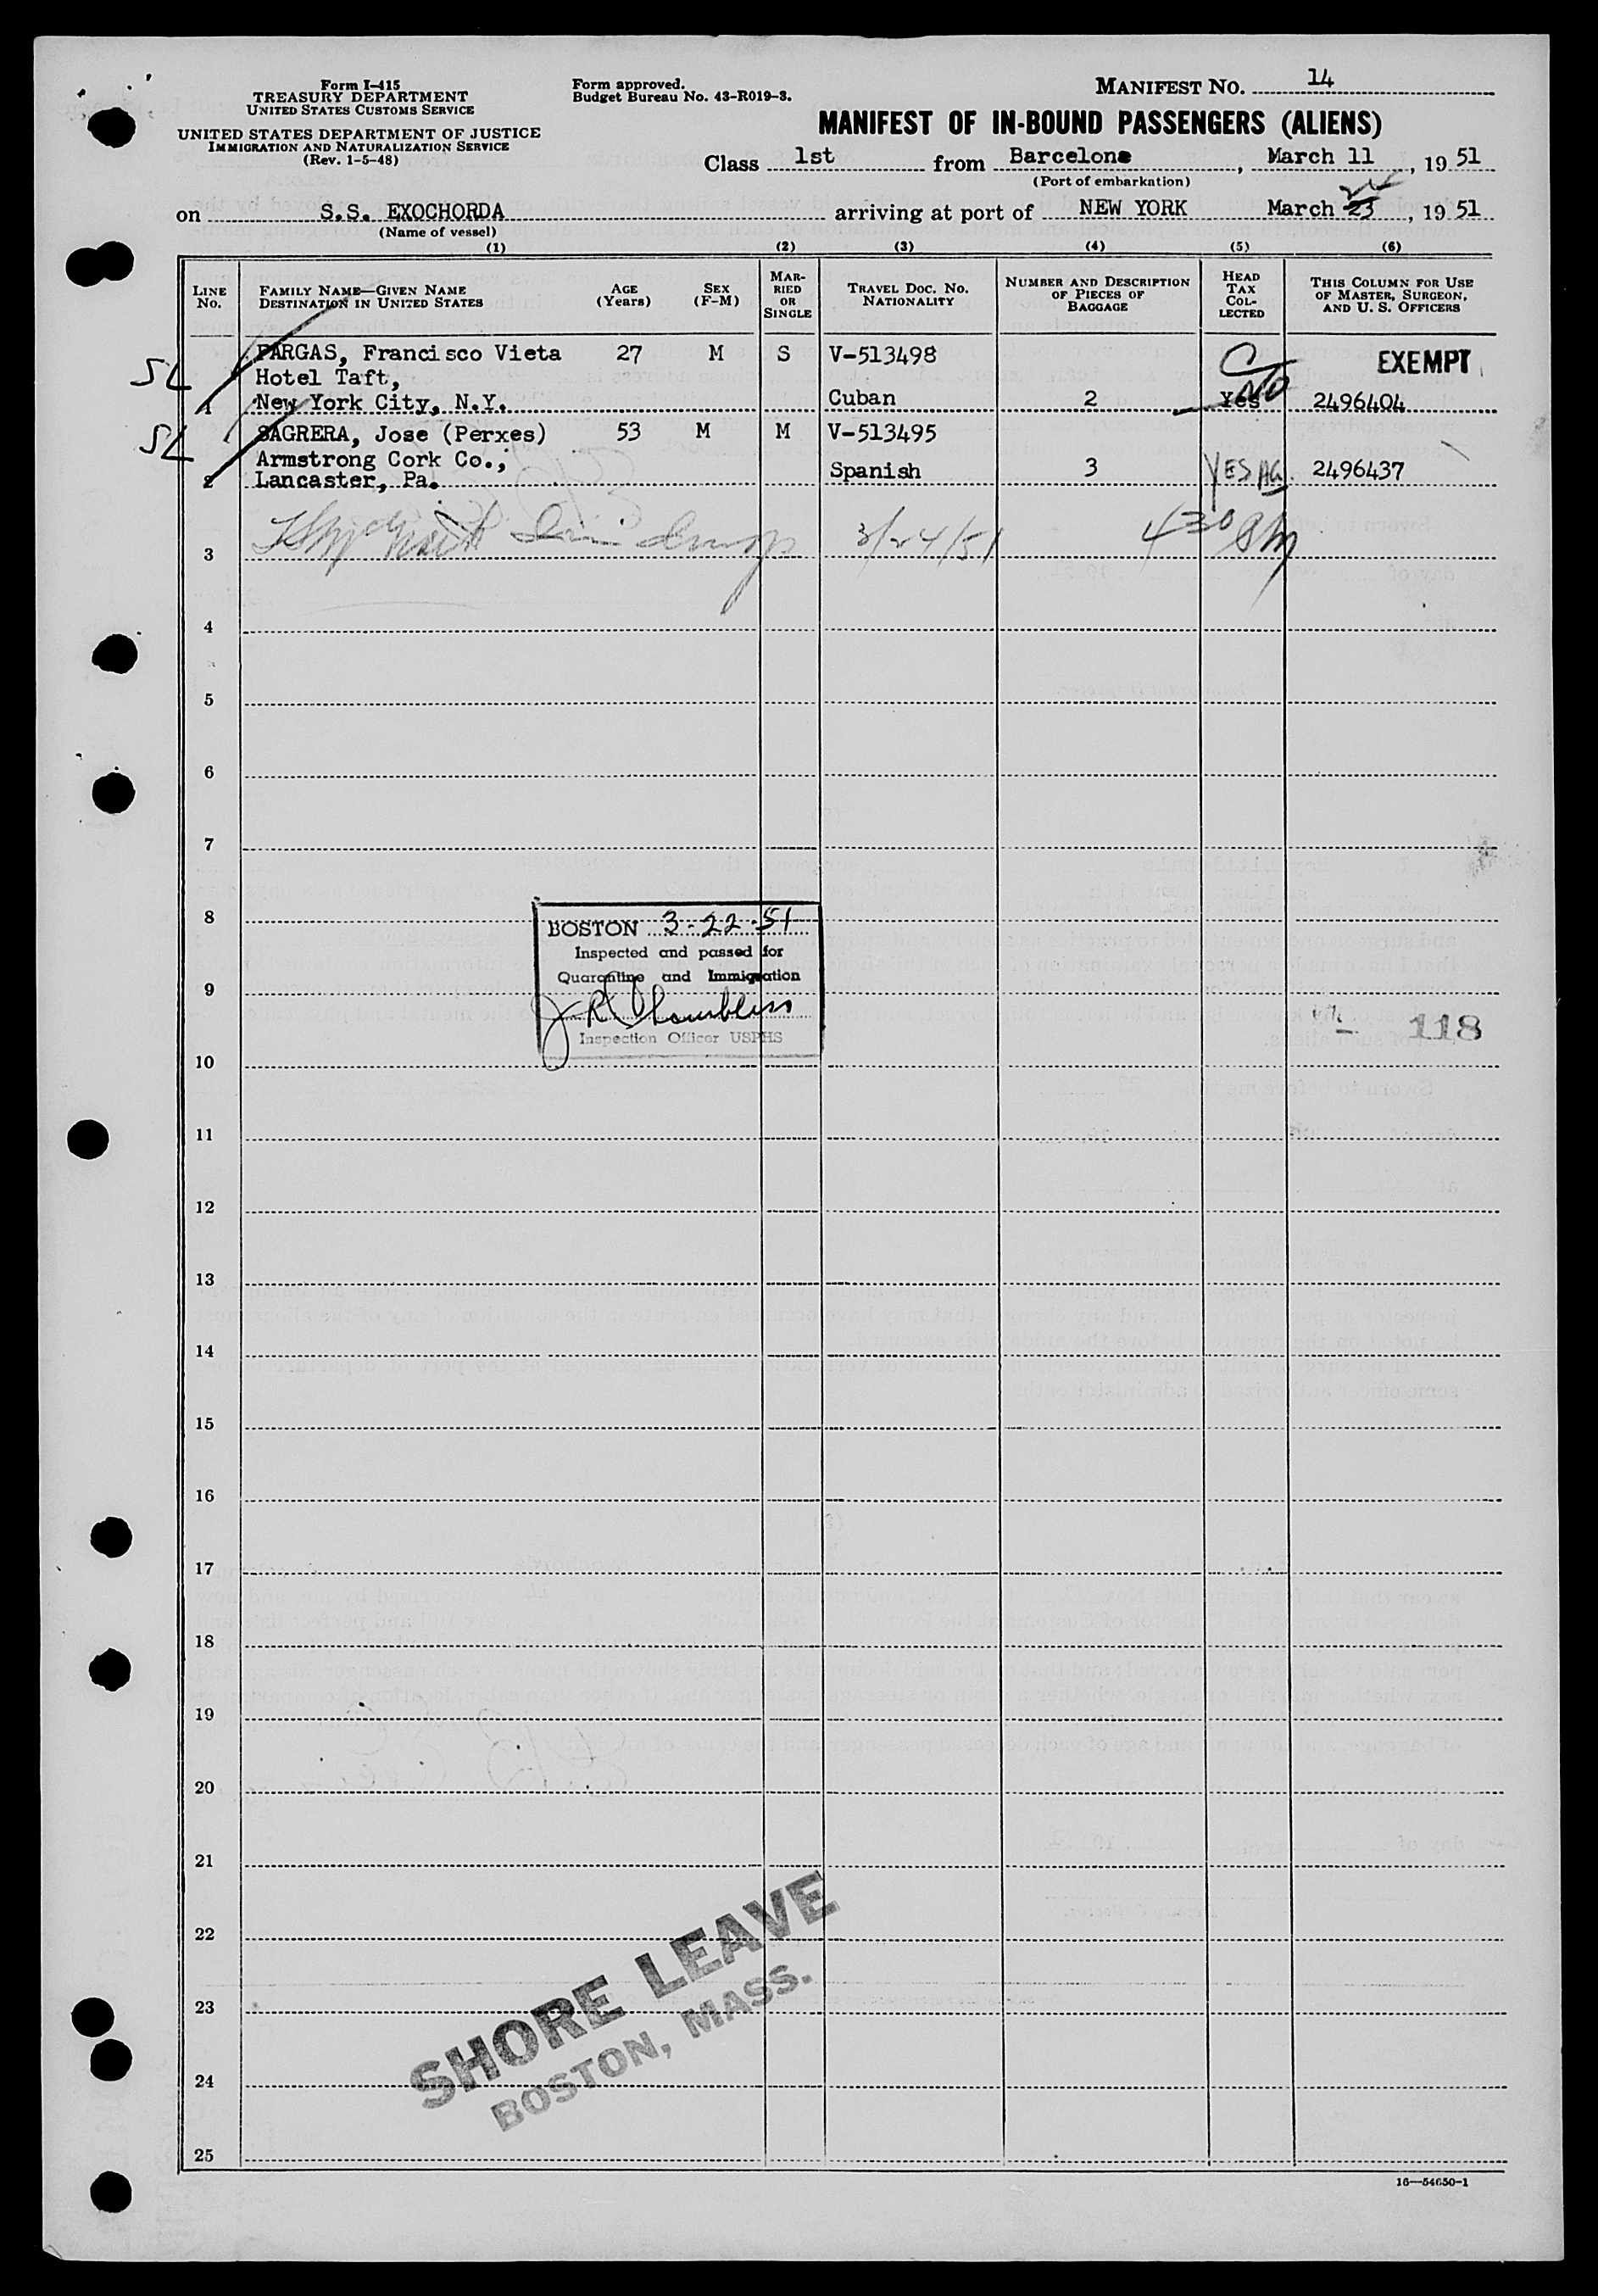 Form I-415
TREASURY DEPARTMENT
UNITED STATES CUSTOMS SERVICE
UNITED STATES DEPARTMENT OF JUSTICE
IMMIGRATION AND NATURALIZATION SERVICE
(Rev. 1-5-48)
Form approved.
Budget Bureau No. 43-R019-3.
MANIFEST NO. 14
MANIFEST OF IN-BOUND PASSENGERS (ALIENS)
Class 1st from Barcelona, March 11, 1951
(Port of embarkation)
on S.S. EXOCHORDA arriving at port of NEW YORK March 23, 1951
(Name of vessel)
(1) (2) (3) (4) (5) (6)
LINE NO.
FAMILY NAME—GIVEN NAME
DESTINATION IN UNITED STATES
AGE (Years)
SEX (F-M)
MARRIED OR SINGLE
TRAVEL DOC. NO.
NATIONALITY
NUMBER AND DESCRIPTION OF PIECES OF BAGGAGE
HEAD TAX COLLECTED
THIS COLUMN FOR USE OF MASTER, SURGEON, AND U. S. OFFICERS
SL FARGAS, Francisco Vieta 27 M S V-513498 EXEMPT
Hotel Taft,
1 New York City, N.Y. Cuban 2 Yes NO 2496404
SL SAGRERA, Jose (Perxes) 53 M M V-513495
Armstrong Cork Co.,
2 Lancaster, Pa. Spanish 3 YES 2496437
3 3/24/51 430
4
5
6
7
8
BOSTON 3-22-51
Inspected and passed for
Quarantine and Immigration
9
J R Chambliss
Inspection Officer USPHS
118
10
11
12
13
14
15
16
17
18
19
20
21
22
SHORE LEAVE
BOSTON, MASS.
23
24
25
16—54650-1